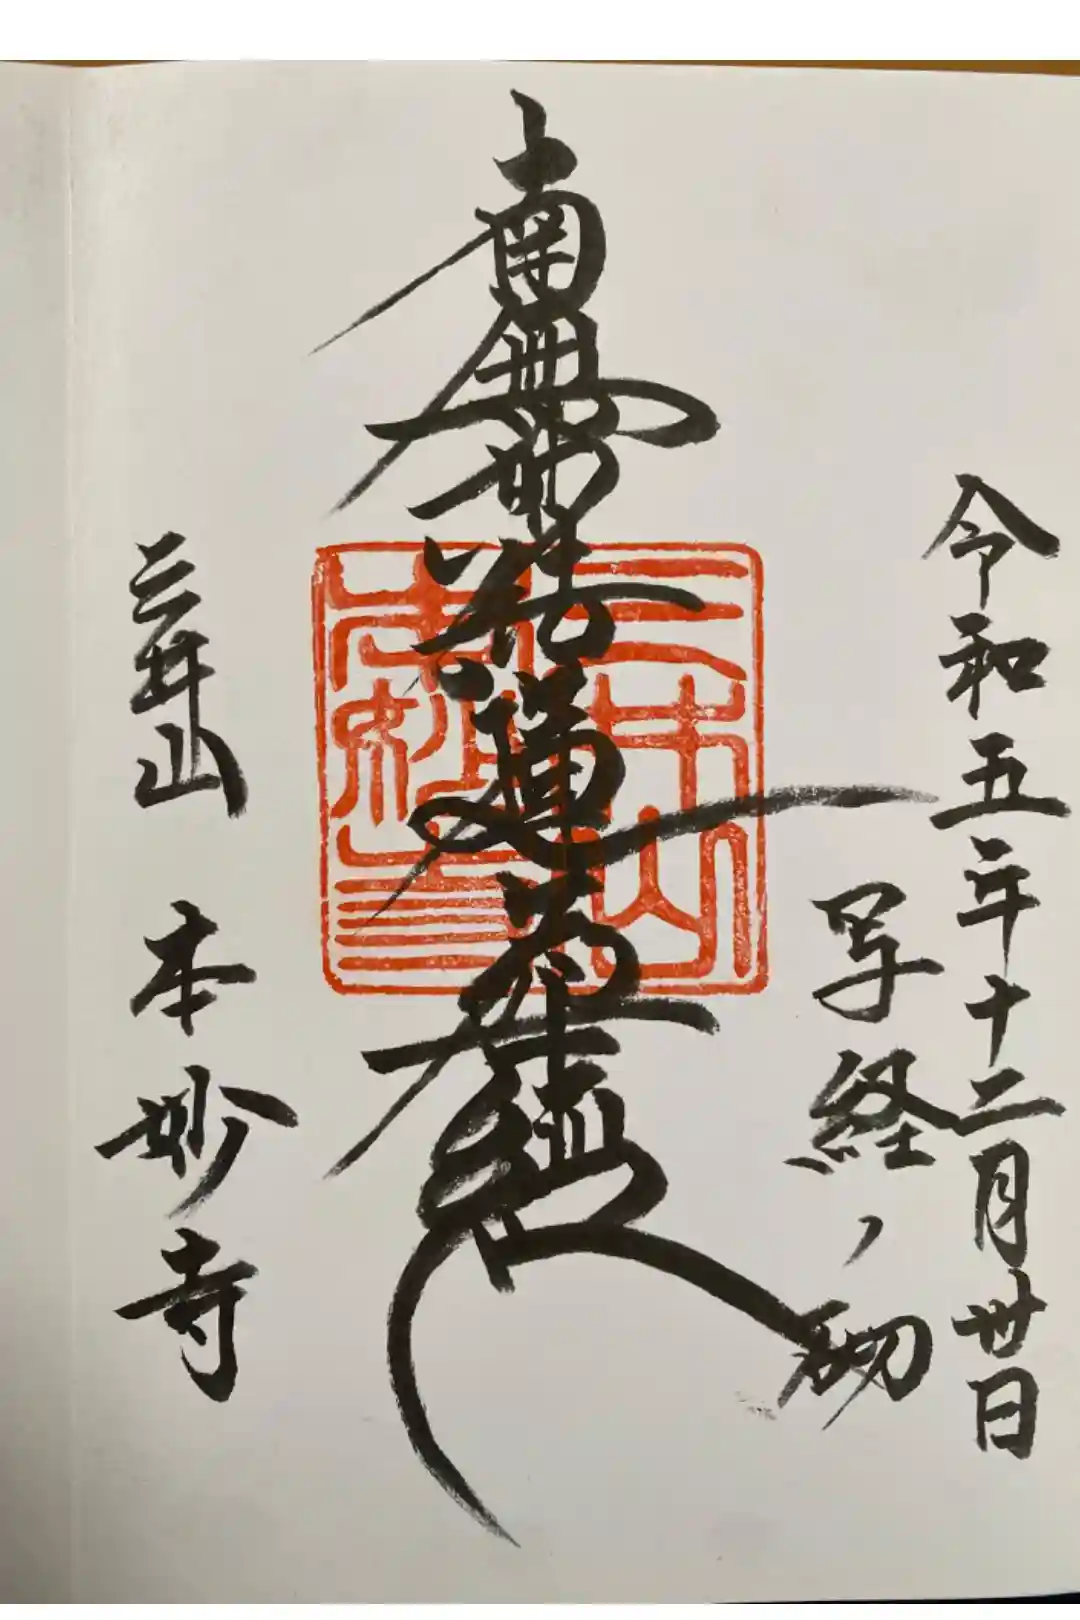 令和五年十二月卅日
写経ノ砌
南無妙法蓮華経
三井山
本妙寺
三井山 本妙寺